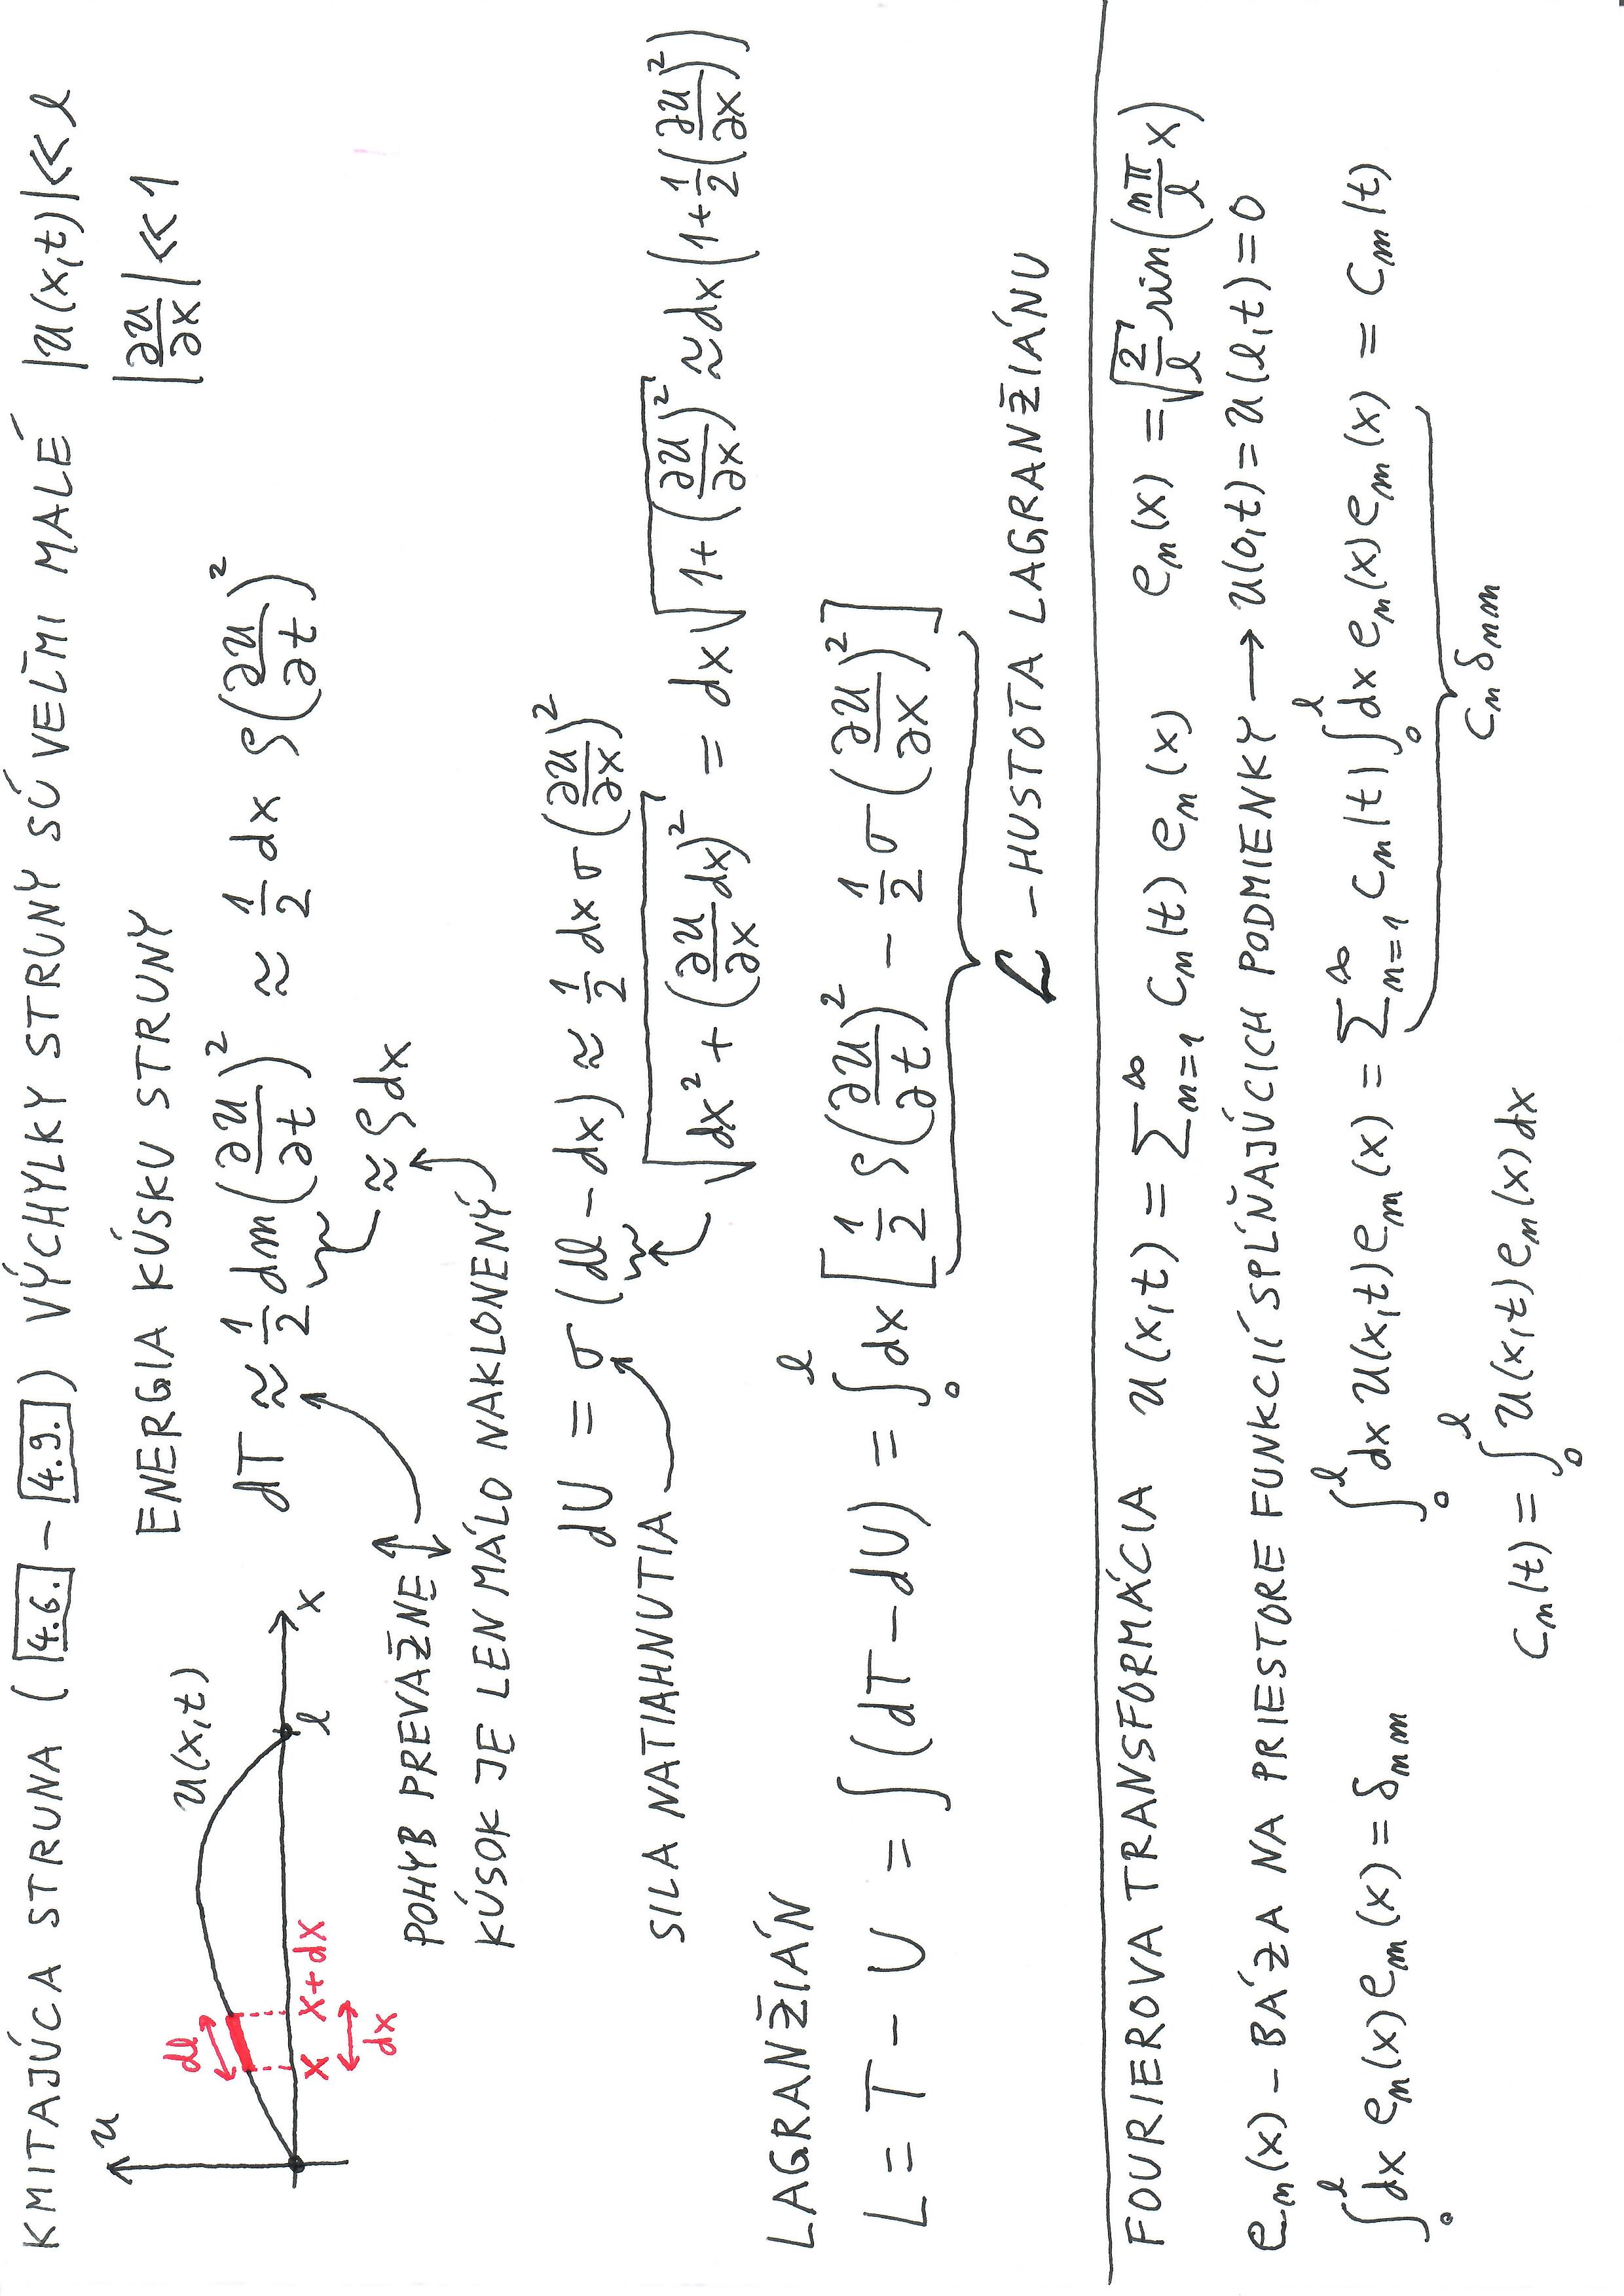 KMITAJÚCA STRUNA (4.6. – 4.9.) VÝCHYLKY STRUNY SÚ VEĽMI MALÉ |u(x,t)| ≪ l
|∂u/∂x| ≪ 1
u
u(x,t)
dl
x
x+dx
dx
l
x
ENERGIA KÚSKU STRUNY
dT ≈ 1/2 dm (∂u/∂t)² ≈ 1/2 dx ρ (∂u/∂t)²
≈ ρdx
POHYB PREVAŽNE ↕
KÚSOK JE LEN MÁLO NAKLONENÝ
dU = σ (dl – dx) ≈ 1/2 dx σ (∂u/∂x)²
SILA NATIAHNUTIA
√(dx² + (∂u/∂x dx)²) = dx √(1 + (∂u/∂x)²) ≈ dx (1 + 1/2 (∂u/∂x)²)
LAGRANŽIÁN
L = T – U = ∫(dT – dU) = ∫₀ˡ dx [1/2 ρ (∂u/∂t)² – 1/2 σ (∂u/∂x)²]
ℒ – HUSTOTA LAGRANŽIÁNU
FOURIEROVA TRANSFORMÁCIA u(x,t) = ∑ₙ₌₁^∞ cₙ(t) eₙ(x) eₙ(x) = √(2/l) sin(nπ/l x)
eₙ(x) – BÁZA NA PRIESTORE FUNKCIÍ SPĹŇAJÚCICH PODMIENKY → u(0,t) = u(l,t) = 0
∫₀ˡ dx eₙ(x) eₘ(x) = δₙₘ ∫₀ˡ dx u(x,t) eₘ(x) = ∑ₙ₌₁^∞ cₙ(t) ∫₀ˡ dx eₙ(x) eₘ(x) = cₘ(t)
cₙ δₙₘ
cₙ(t) = ∫₀ˡ u(x,t) eₙ(x) dx